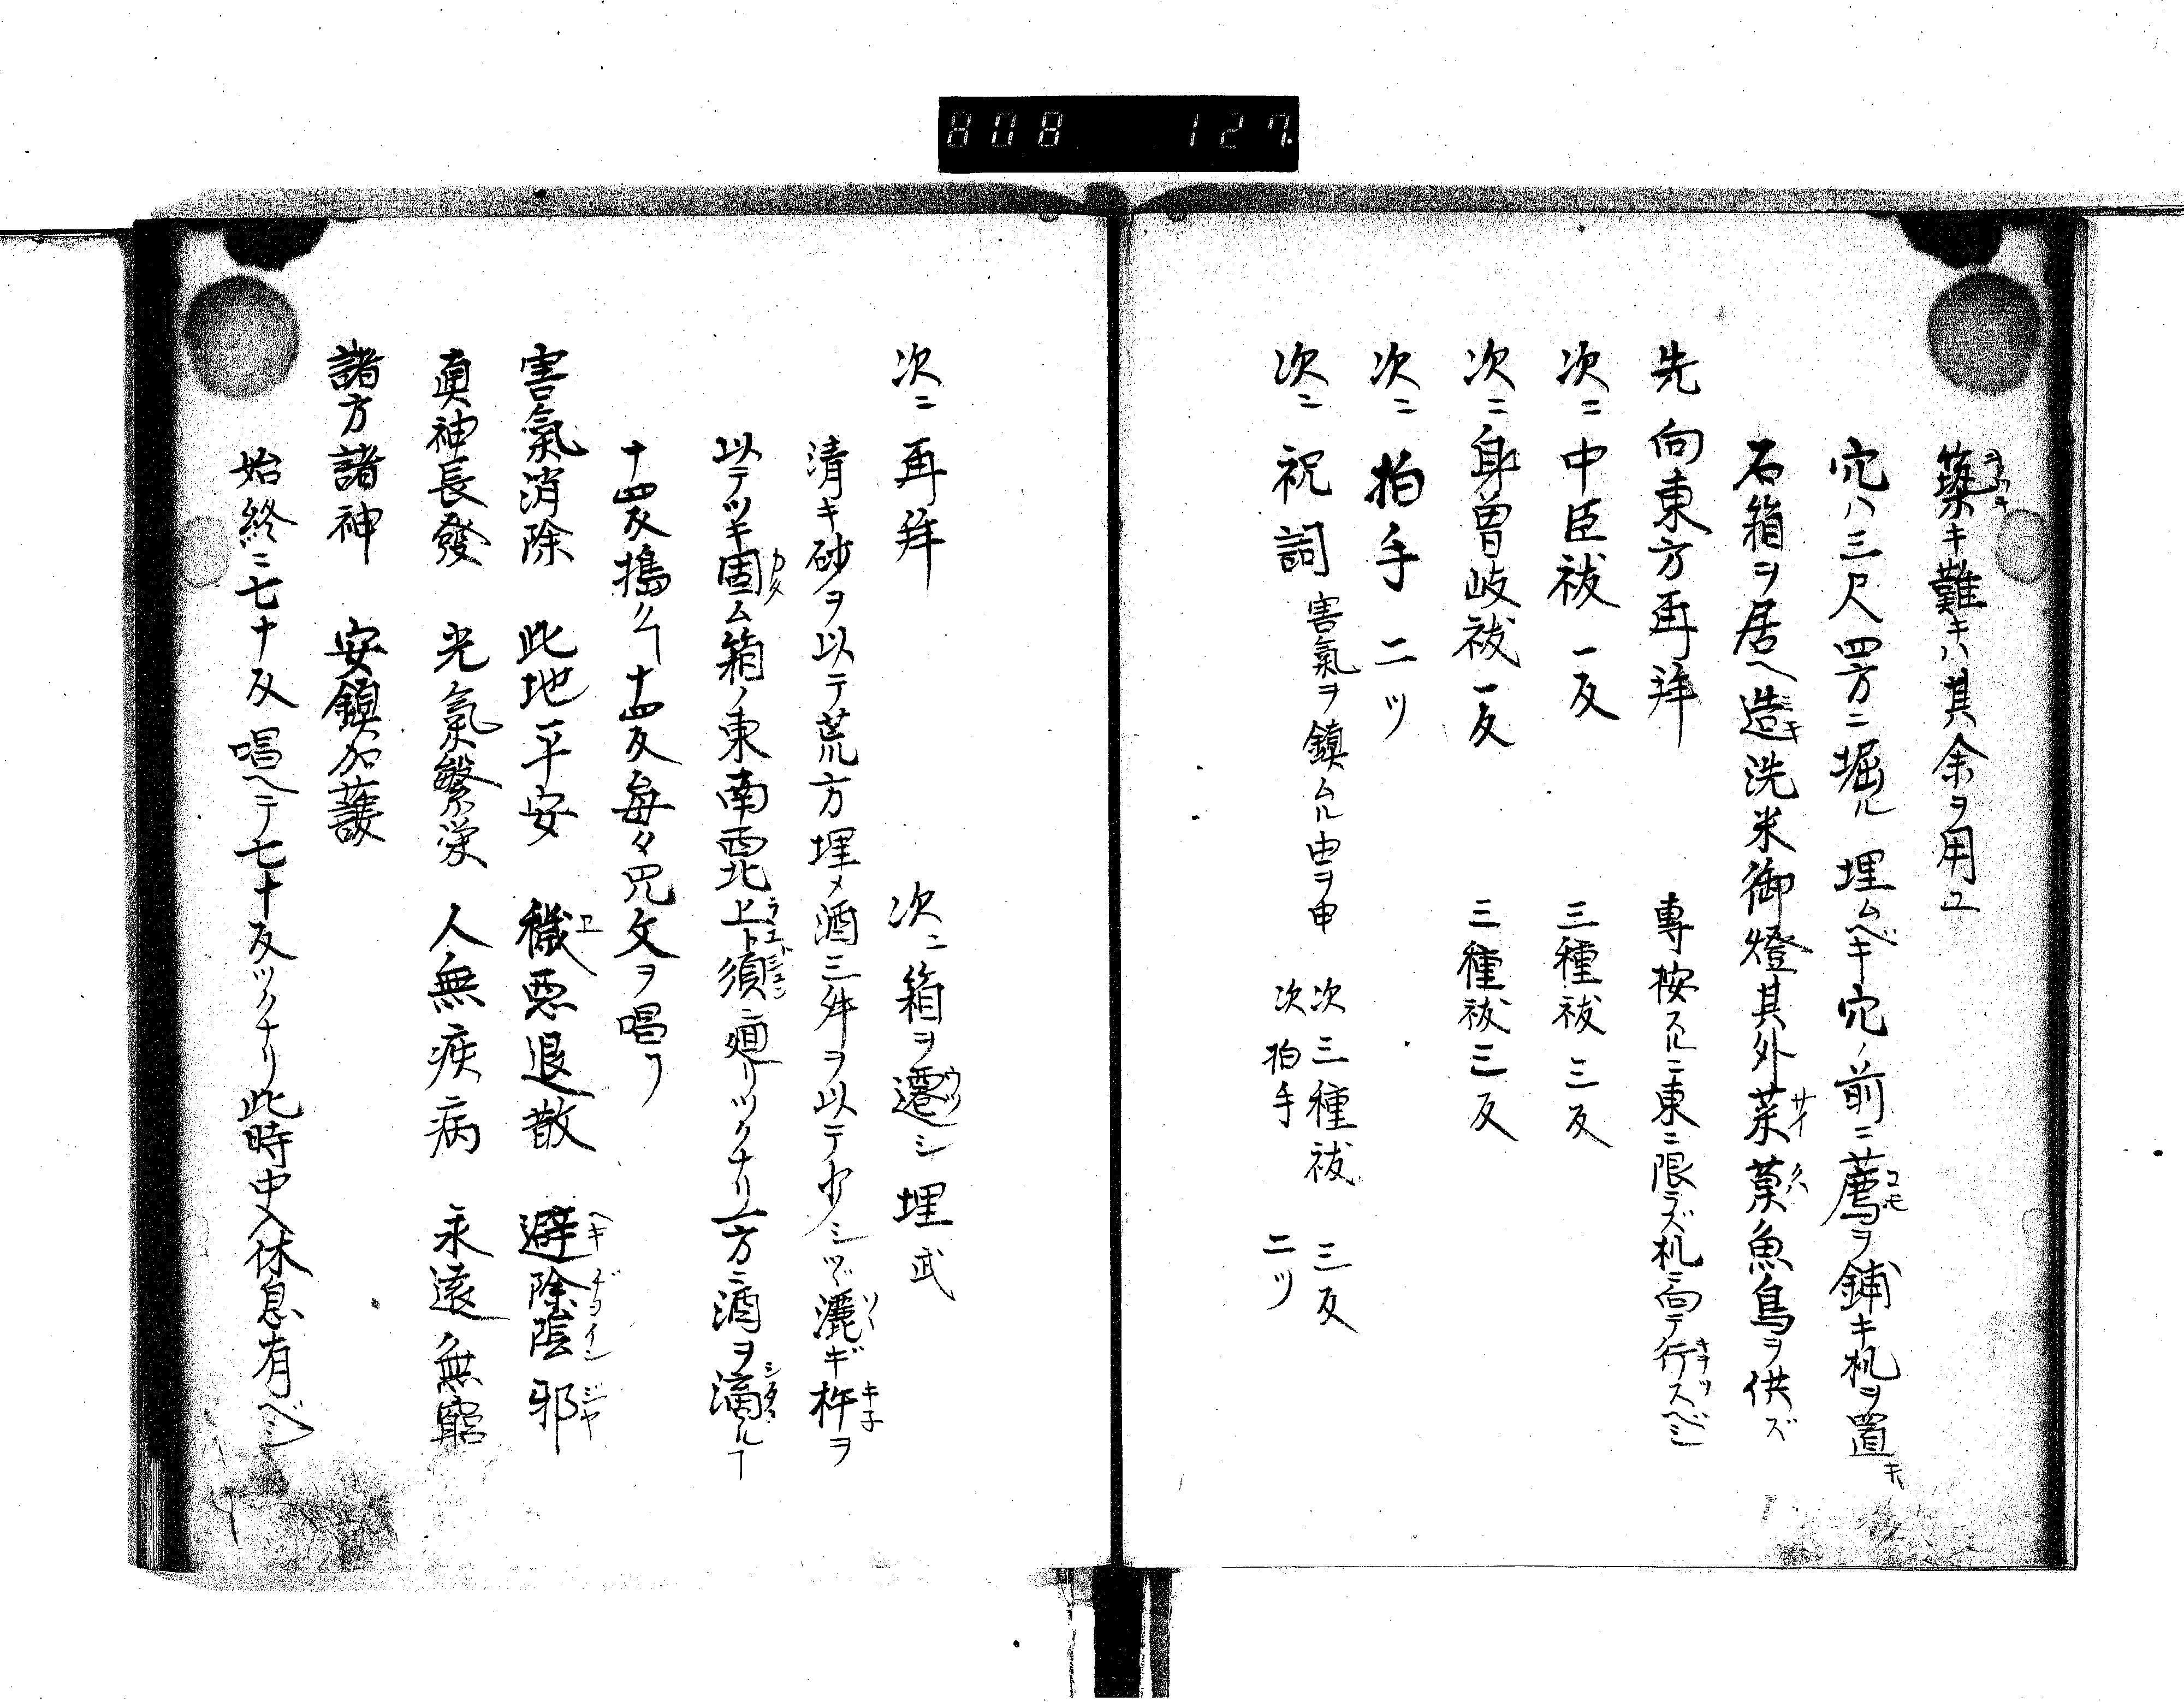 808 127
築キ難キハ其余ヲ用ユ
穴ハ三尺四方ニ堀ル 埋ムベキ穴ノ前ニ薦ヲ鋪キ机ヲ置キ
石箱ヲ居ヘ造キ洗米御燈其外菜菓魚鳥ヲ供ズ
先 向東方再拜 專按スルニ東ニ限ラズ机ニ向テ行スベシ
次ニ中臣祓一反 三種祓三反
次ニ身曽岐祓一反 三種祓三反
次ニ拍手二ツ
次ニ祝詞 害氣ヲ鎮ムル由ヲ申 次三種祓 三反
次拍手 二ツ
次ニ再拜 次ニ箱ヲ遷シ埋
清キ砂ヲ以テ荒方埋メ酒三舛ヲ以テ少シツヾ灑ギ杵ヲ
以テツキ固ム箱ノ東南西北上ト須ニ廻リツクナリ一方ニ酒ヲ滴ルヿ
十四反搗クヿ十四反毎々咒文ヲ唱フ
害氣消除 此地平安 穢悪退散 避除陰邪
眞神長發 光氣繁栄 人無疾病 永遠無窮
諸方諸神 安鎮加護
始終ニ七十反唱ヘテ七十反ツクナリ此時中入休息有ベシ